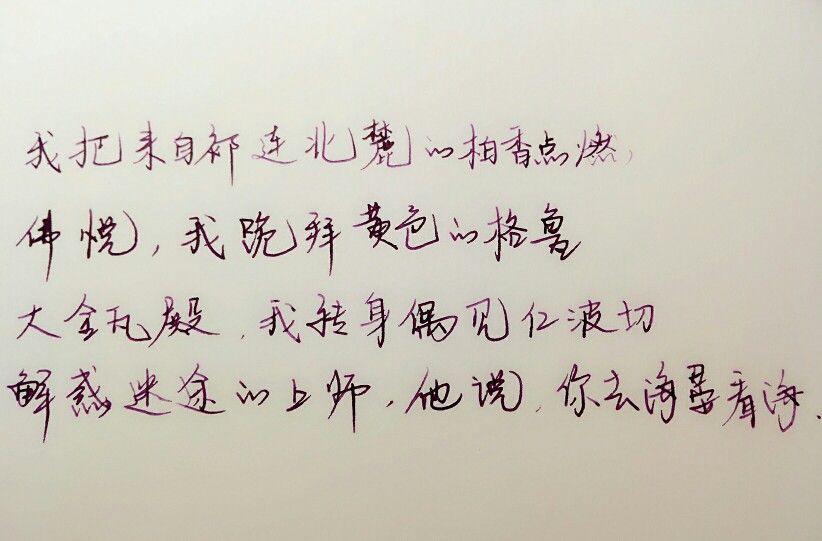 我把来自祁连北麓的柏香点燃，
佛悦，我跪拜黄色的格鲁
大金瓦殿，我转身偶见仁波切
解惑迷途的上师，他说，你去海晏看海.